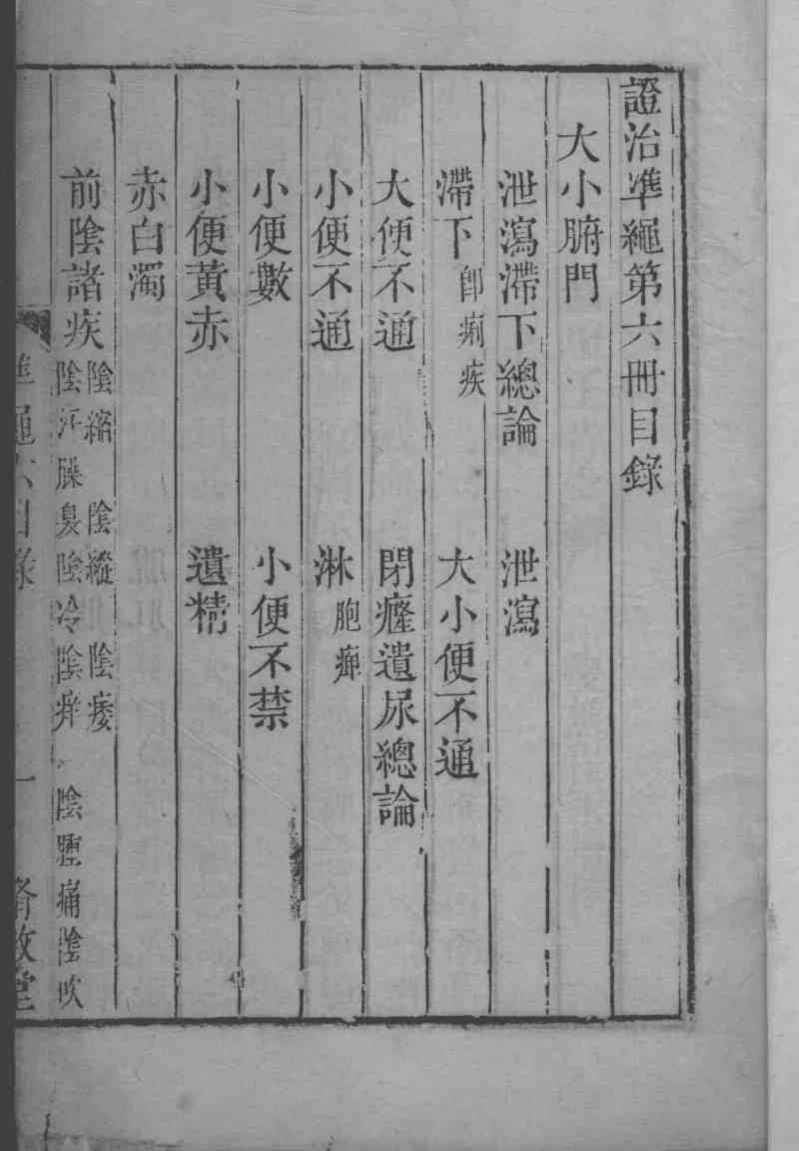 證治準繩第六冊目錄
大小腑門
泄瀉滯下總論 泄瀉
滯下卽痢疾 大小便不通
大便不通 閉癃遺尿總論
小便不通 淋胞痹
小便數 小便不禁
小便黃赤 遺精
赤白濁
前陰諸疾陰縮 陰縱 陰痿
陰汗臊臭陰冷陰痒 陰腫痛陰吹